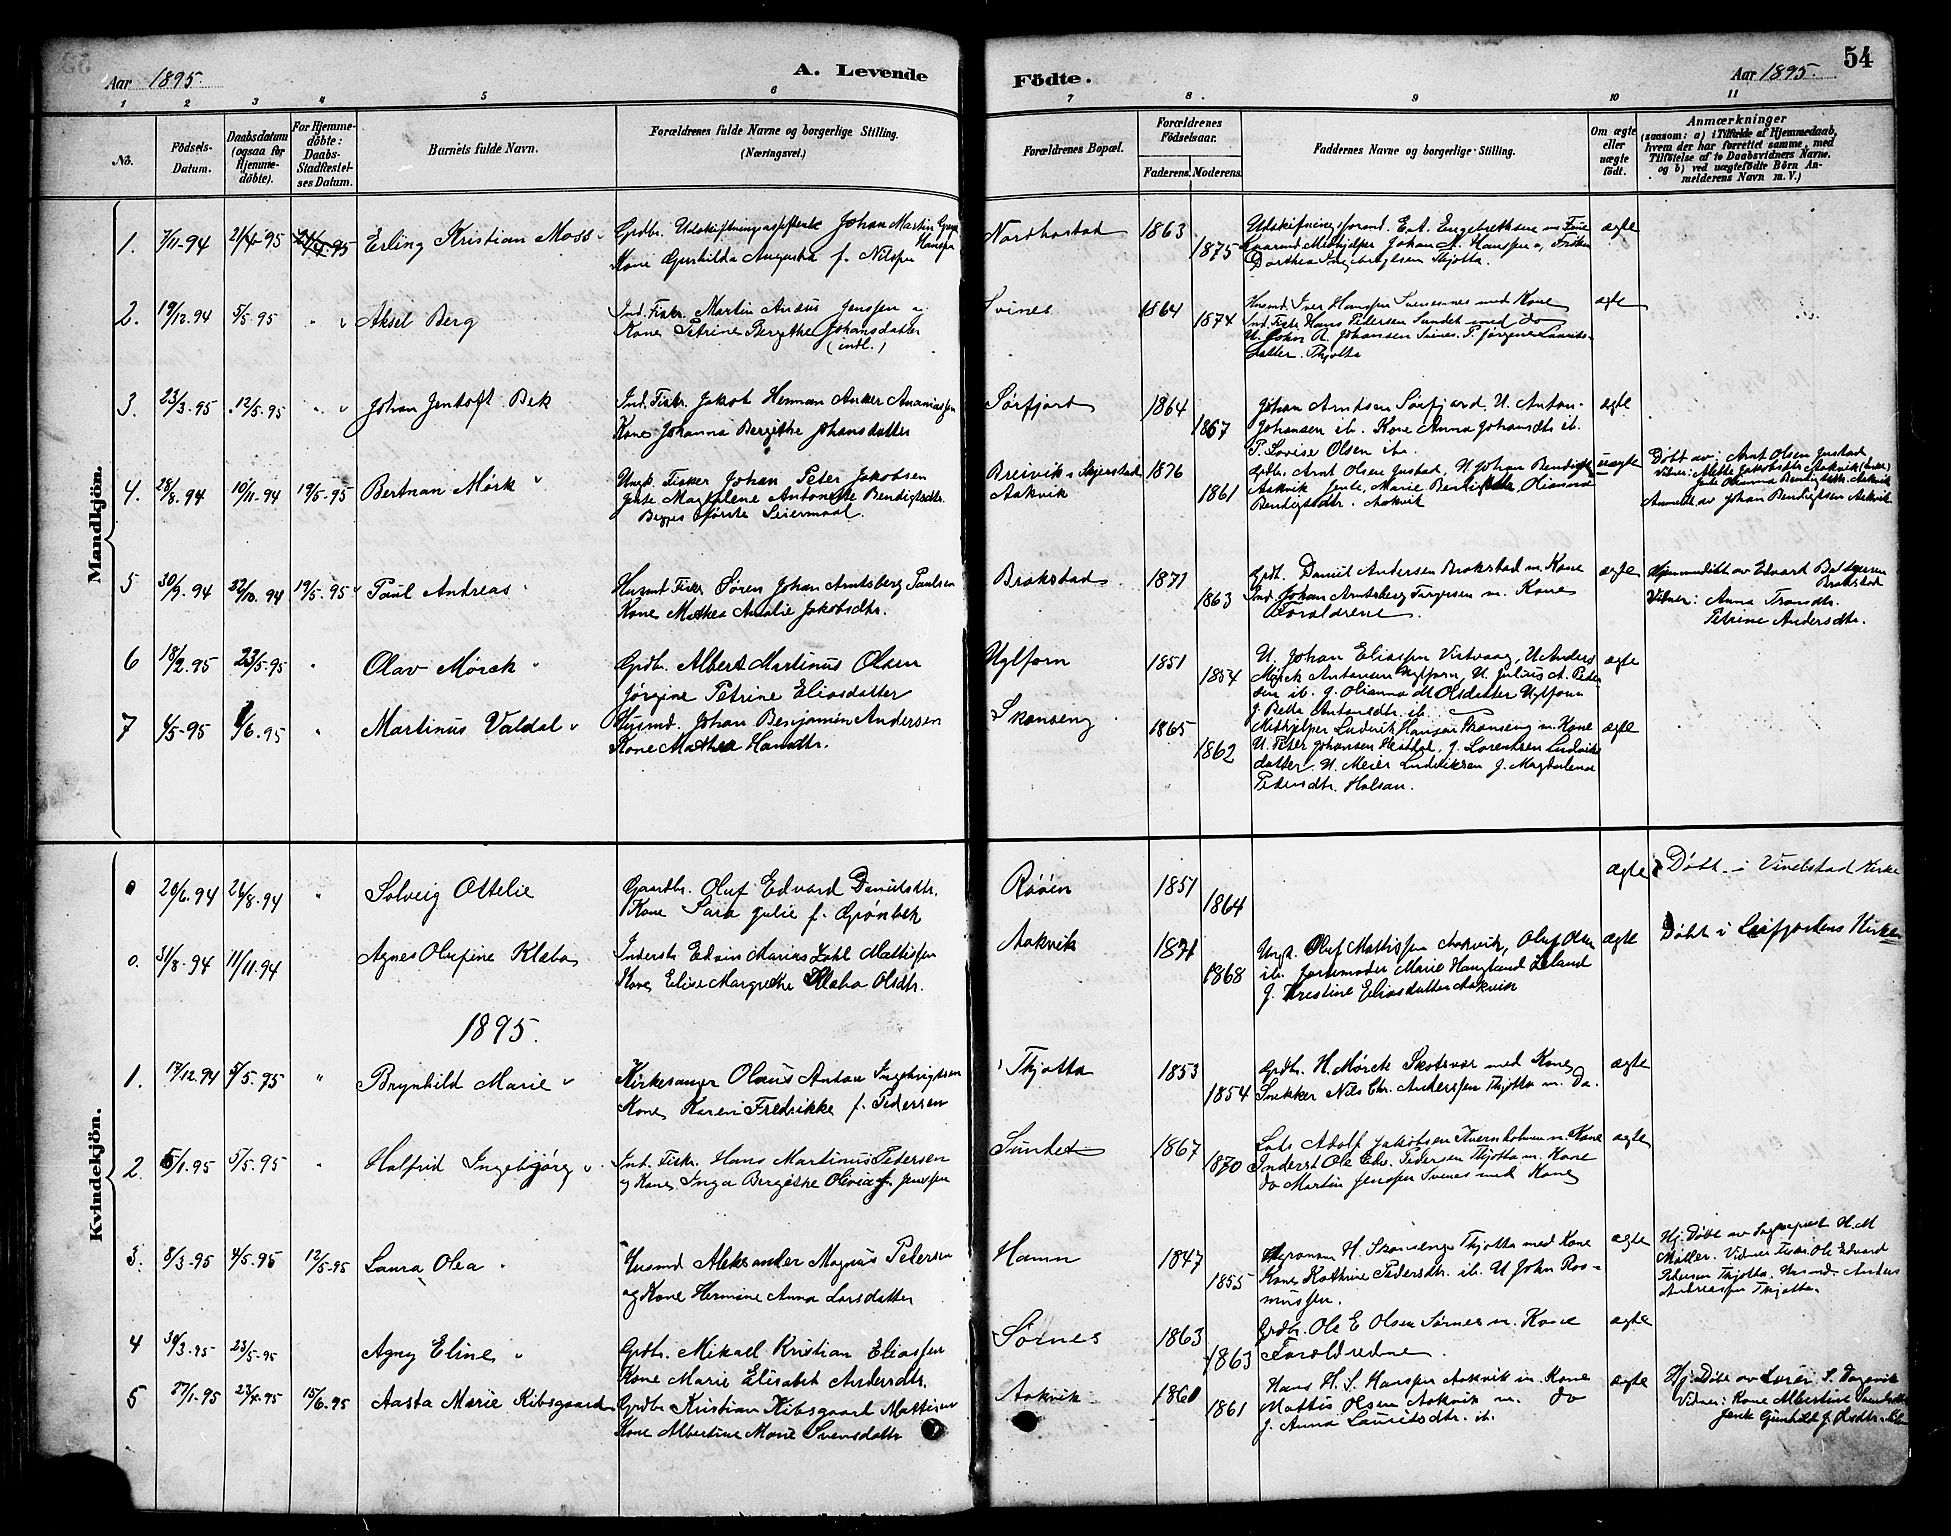 Aar 1895.
A. Levende
Födte.
Aar 1895.
54
1 2 3 4 5 6 7 8. 9 10 11
No.
Födsels-Datum.
Daabsdatum (ogsaa for Hjemme-döbte).
For Hjemme-döbte: Daabs-Stadfæstel-ses Datum.
Barnets fulde Navn.
Forældrenes fulde Navne og borgerlige Stilling. (Næringsvei.)
Forældrenes Bopæl.
Forældrenes Födselsaar.
Faderens. Moderens.
Faddernes Navne og borgerlige Stilling.
Om ægte eller uægte födt.
Anmærkninger
(saasom: a) i Tilfælde af Hjemmedaab,
hvem der har forrettet samme, med
Tilföielse af to Daabsvidners Navne.
og b) ved uægtefödte Börn An-
melderens Navn m. V.)
Mandkjön.
1. 7/11-94 21/4-95 21/4-95 Erling Kristian Moss
Grdbr. Udskiftningsassistent Johan Martin
Hanssen
Kone Gunhilda Augusta f. Nilssen
Nordbostad 1863 1875
Udskiftningsformand. E. A. Engebrethsen m Frue
Johan A. Hanssen
Dorthea Ingebrigtsen Thjotta.
ægte
2. 19/12.94 5/5-95 " Aksel Berg
Ind. Fisker. Martin Jenssen
Kone Petrine Bergithe Johansdatter
(indl.)
Svines 1864 1874
Husmd. Iver Hanssen Svinesnes med Kone
Ind. Fisker Hans Pedersen Sundet med do
U. Johan A. Johansen Svines. P. Jørgine Laurits-
datter. Thjotta
ægte
3. 23/3.95 12/5-95 " Johan Jentoft Bek
Ind. Fisker. Jakob Herman Anker Ananiassen
Kone Johanna Bergithe Johansdatter
Sørfjord 1864 1867
Johan Arntsen Sørfjord, U. Anton
Johansen ib. Kone Anna Johansdtr ib.
P. Lovise Olsen ib.
ægte
4. 28/8.94 10/11-94 19/5-95 Bertnan Mørk
Ungk. Fisker Johan Peter Jakobsen
Jente Magdalene Antonette Bendigtsdtr.
Begges første Leiermaal.
Breivik i Skjerstad
Aakvik
1876 1861
Grdbr. Arnt Olsen Justad, U Johan Bendigtsen
Aakvik Jente, Marie Olianna
Bendigtsdtr. Aakvik
uægte
Døbt av: Arnt Olsen Justad
Vidner: Mette Jakobsdtr Aakvik
Jente Olianna Bendigtsdtr. Aakvik
Anmeldt av Johan Bendigtsen Aakvik
5 30/9.94 22/10.94 19/5-95 Paul Andreas
Husmd Fisker Søren Johan Arntsberg Paulsen
Kone Mathea Amalie Jakobsdtr.
Brakstad 1871 1863
Grdb. Daniel Andersen Brakstad m. Kone
Ind. Johan Arntsberg m. Kone
Forældrene
ægte
Hjemmedøbt av Edvard Baltzersen
Brakstad
Vidner: Anna Transdtr.
Petrine Andersdtr.
6 18/2.95 23/5-95 " Olav Mørch
Grdbr. Albert Martinus Olsen
Jørgine Petrine Eliasdatter
Uglfjorn 1851 1854
U. Johan Eliassen Vistvaag, U Anders
Mørck Antonsen Uglfjorn, U. Julius A. Peder-
sen ib. J. Olianna Olsdatter Uglfjorn
J. Antonsdtr. ib.
ægte
7 4/5-95 1/6.95 " Martinus Valdal
Husmd. Johan Benjamin Andersen
Kone Mathea Hansdtr.
Skonseng 1865 1862
Medhjelper Ludvik Hansen Skonseng m. Kone
U. Peter Johansen J. Lorentsen Ludviks-
datter. U. Meier Ludviksen J. Magdalena
Pedersdtr. Halsan.
ægte
Kvindekjön.
0 20/6.94 26/8-94 " Solveig Ottelie
Gaardbr. Oluf Edvard
Kone Sara Julie f. Grønbek
Røøen 1851 1864
ægte
Døbt i Vindstad Kirke
0. 31/8-94 11/11.94 Agnes Olufine Klæbo
Inderst. Edvin Marius Dahl Mattissen
Kone Elise Margrethe Klæbo Olsdtr.
Aakvik 1871 1868
Ungk. Oluf Mattissen Aakvik, Oluf Olsen
ib. Jordemoder Marie Haugland Leland
J. Kristine Eliasdatter Aakvik
ægte
Døbt i Leifjordens Kirke
1895.
1. 17/12.94 5/5.95 " Brynhild Marie
Kirkesanger Olaus Anton Ingebrigtsen
Kone Karen Fredrikke f. Pedersen
Thjotta 1853 1854
Grdbr. H. Mørck Skotsvær med Kone
Snekker Nils Chr. Anderssen Thjotta m. do.
ægte
2. 5/1.95 5/5-95 " Halfrid Ingebjørg
Ind. Fisker. Hans Martinus Pedersen
og Kone Inga Bergithe Olivia f. Jenssen
Sundet 1867 1870
Lods Adolf Jakobsen Kvernholmen m. Kone
Inderst Ole Edv. Pedersen Thjotta m. Kone
do Martin Jenssen Svenes med Kone
ægte
3. 8/3-95 4/5-95 12/5-95 Laura Olea
Husmd Aleksander Magnus Petersen
og Kone Hermine Anna Larsdatter
Hamn 1847 1855
Agronom H. Skonseng Thjotta med Kone
Kone Kathrine Pedersdtr. ib. U John Ras-
mussen.
ægte
Hj. Døbt av Sogneprest H. M
Møller. Vidner Fisker Ole Edvard
Petersen Thjotta. Husmd. Anders
Andreassen Thjotta.
4 30/3-95 23/5-95 Agny Eline
Grdbr. Mikael Kristian Eliassen
Kone Marie Elisabet Andersdtr.
Sørnes 1863 1863
Grdbr. Ole E Olsen Sørnes m. Kone
Forældrene.
ægte
5 27/1.95 23/4.95 15/6.95 Aasta Marie Kibsgaard
Grdbr Kristian Kibsgaard Mattisen
Kone Albertine Marie Svensdatter
Aakvik 1861 1861
Hans H. S. Hanssen Aakvik m. Kone
Mattis Olsen Aakvik m. do
J. Anna Lauritsdtr. ib.
ægte
Hj. Døbt av Lærer S.
Vidner: Kone Albertine
Jente Gunhild J. Olsdtr.